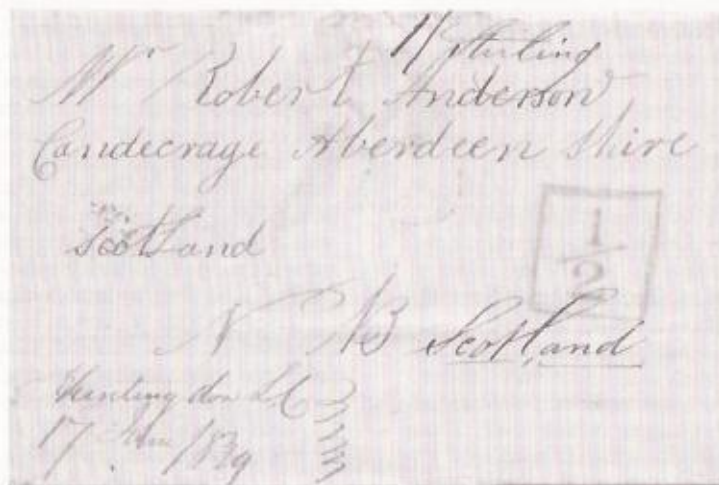 1/ sterling
Mr Robert Anderson
Candecrage Aberdeen Shire
Scotland
1/2
N B Scotland
Huntingdon L.C
17 /39